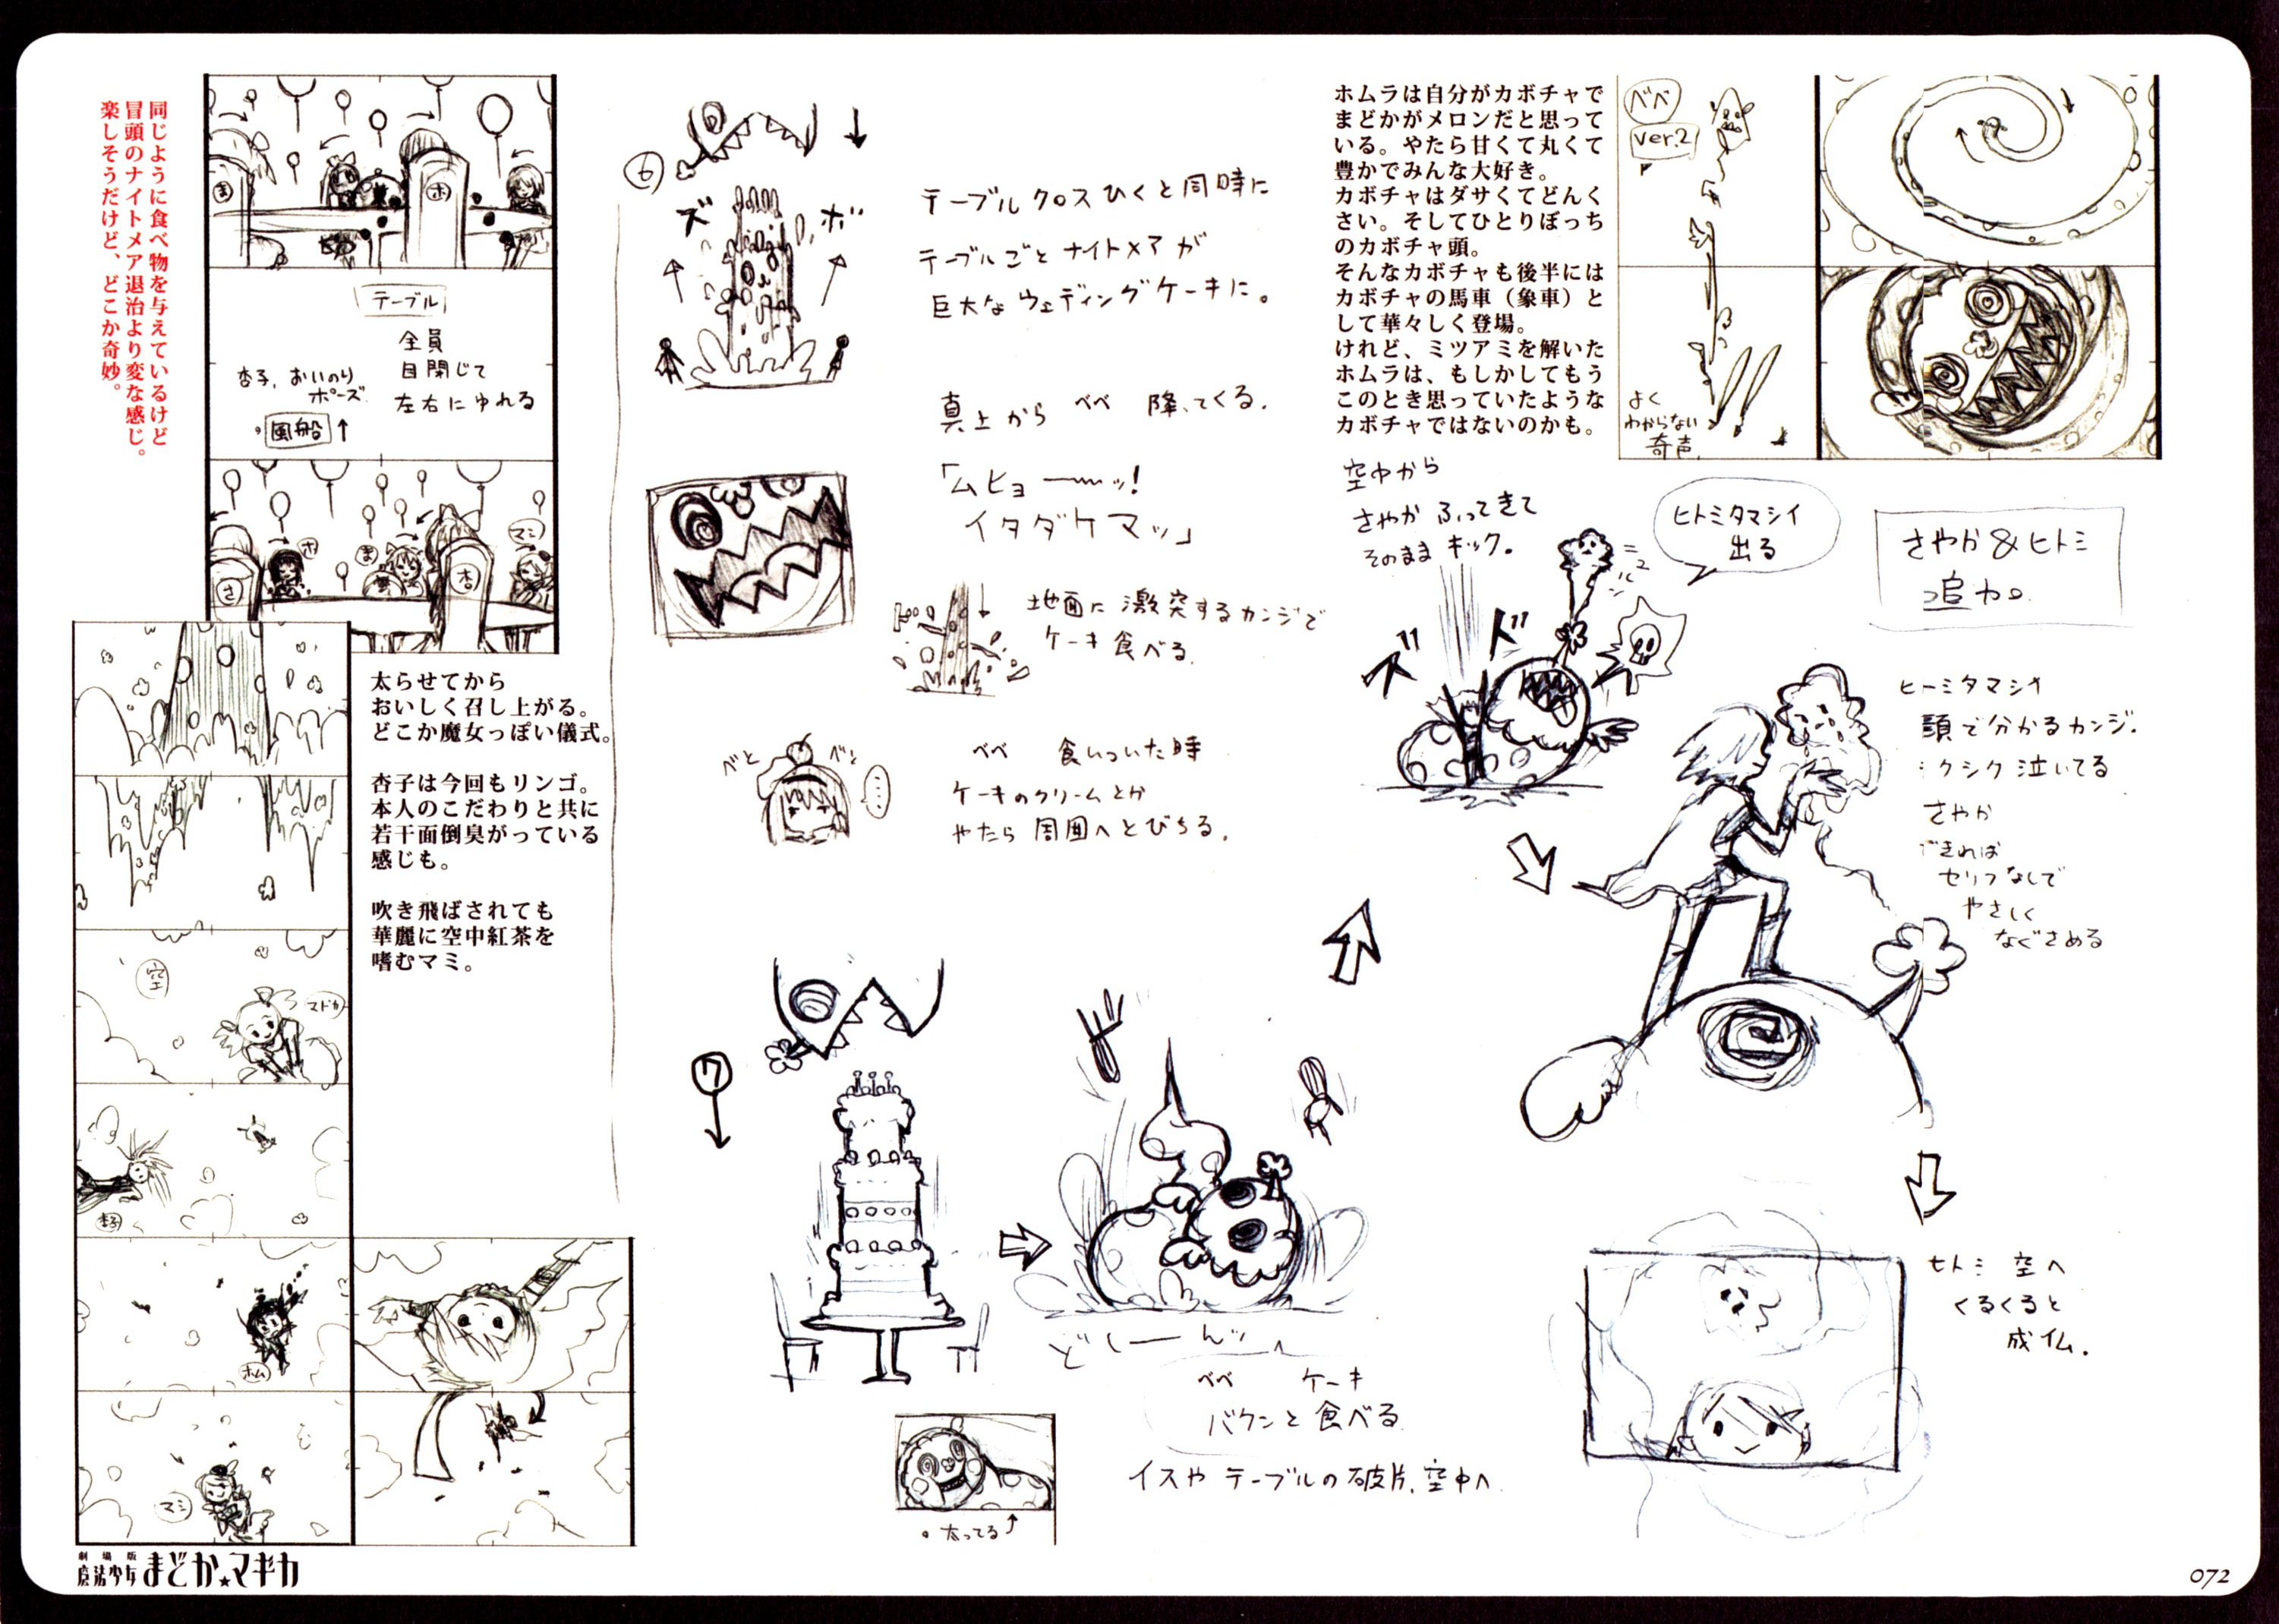 同じように食べ物を与えているけど
冒頭のナイトメア退治より変な感じ。
楽しそうだけど、どこか奇妙。
ま
ホ
テーブル
全員
目閉じて
左右にゆれる
杏子、おいのり
ポーズ
風船
ホ
ま
マミ
さ
杏
太らせてから
おいしく召し上がる。
どこか魔女っぽい儀式。
杏子は今回もリンゴ。
本人のこだわりと共に
若干面倒臭がっている
感じも。
吹き飛ばされても
華麗に空中紅茶を
嗜むマミ。
空
マドカ
杏子
ホム
マミ
6
ズ
ボ
テーブルクロスひくと同時に
テーブルごとナイトメアが
巨大なウェディングケーキに。
真上から ベベ 降ってくる.
「ムヒョーーッ!
イタダケマッ」
地面に激突するカンジで
ケーキ食べる.
べと
べと
ベベ 食いついた時
ケーキのクリームとか
やたら周囲へとびちる.
7
どしーんッ
ベベ ケーキ
バクンと食べる
イスやテーブルの破片、空中へ
太ってる
ホムラは自分がカボチャで
まどかがメロンだと思って
いる。やたら甘くて丸くて
豊かでみんな大好き。
カボチャはダサくてどんく
さい。そしてひとりぼっち
のカボチャ頭。
そんなカボチャも後半には
カボチャの馬車（象車）と
して華々しく登場。
けれど、ミツアミを解いた
ホムラは、もしかしてもう
このとき思っていたような
カボチャではないのかも。
ベベ
ver.2
よく
わからない
奇声
空中から
さやか ふってきて
そのまま キック。
ズ
ド
ヒトミタマシイ
出る
さやか&ヒトミ
追加。
ヒトミタマシイ
頭で分かるカンジ.
シクシク泣いてる
さやか
できれば
セリフなしで
やさしく
なぐさめる
ヒトミ 空へ
くるくると
成仏.
劇場版
魔法少女まどか★マギカ
072